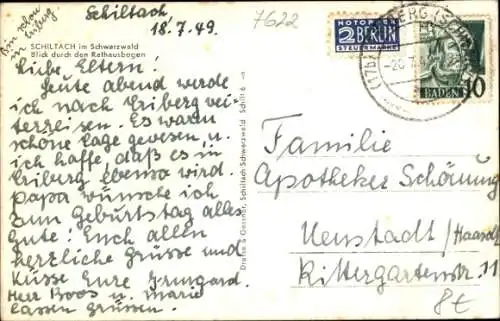 Bin schon
in Triberg.
Schiltach
18.7.49.
7622
SCHILTACH im Schwarzwald
Blick durch den Rathausbogen
Liebe Eltern!
Heute abend werde
ich nach Triberg wei-
terreisen. Es waren
schöne Tage gewesen, u.
ich hoffe, daß es in
Triberg ebenso wird.
Papa wünsche ich
zum Geburtstag alles
Gute! Euch allen
herzliche Grüsse und
Küsse Eure Irmgard.
Herr Boos u. Marie
lassen grüssen.
Schiltach Schwarzwald Schilt 6
NOTOPFER
2 BERLIN
STEUERMARKE
BERG (SCHW
(17b)
BADEN 10
Familie
Apotheker Schönung
Neustadt/Haardt
Rittergartenstr. 11